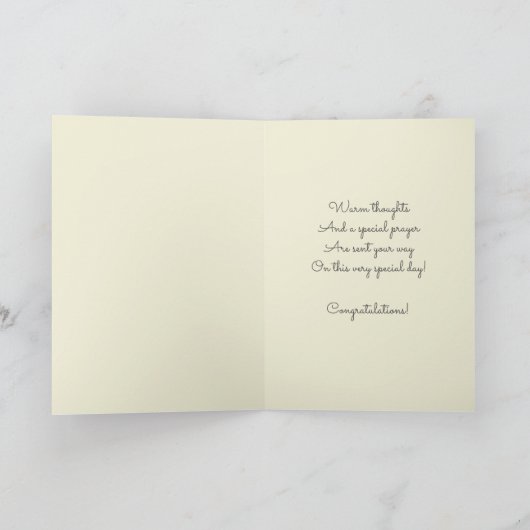 Warm thoughts
And a special prayer
Are sent your way
On this very special day!
Congratulations!